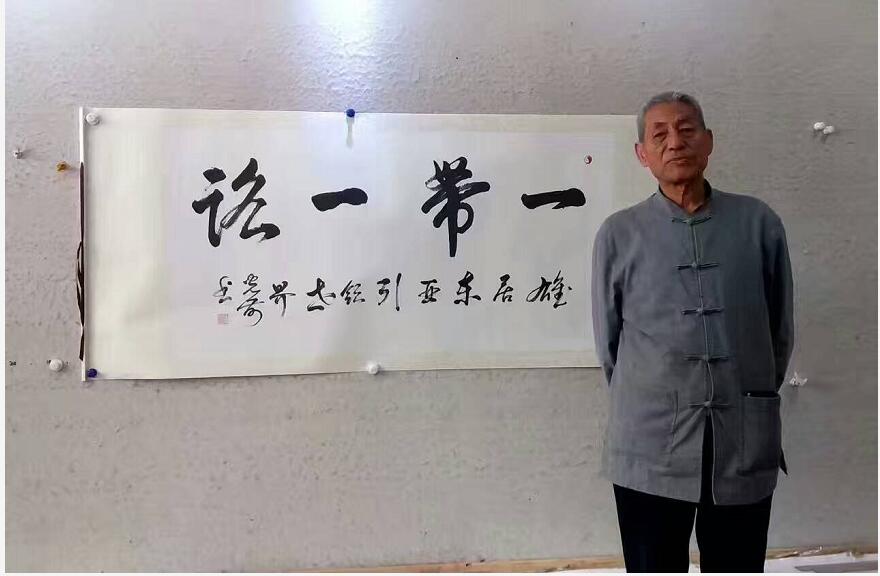 一带一路
雄居东亚引领世界
书